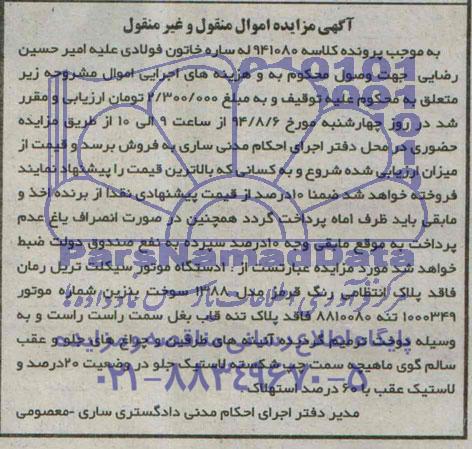 آگهی مزایده اموال منقول و غیر منقول
به موجب پرونده کلاسه ۹۴۱۰۸۰ له ساره خاتون فولادی علیه امیر حسین
رضایی جهت وصول محکوم به و هزینه های اجرایی اموال مشروحه زیر
متعلق به محکوم علیه توقیف و به مبلغ ۲/۳۰۰/۰۰۰ تومان ارزیابی و مقرر
شد در روز چهارشنبه مورخ ۹۴/۸/۶ از ساعت ۹ الی ۱۰ از طریق مزایده
حضوری در محل دفتر اجرای احکام مدنی ساری به فروش برسد و قیمت از
میزان ارزیابی شده شروع و به کسانی که بالاترین قیمت را پیشنهاد نمایند
فروخته خواهد شد ضمنا ۱۰درصد از قیمت پیشنهادی نقدا از برنده اخذ و
مابقی باید ظرف اماه پرداخت گردد همچنین در صورت انصراف یاغ عدم
پرداخت به موقع مابقی وجه ۱۰درصد سپرده به نفع صندوق دولت ضبط
خواهد شد مورد مزایده عبارتست از : ۱دستگاه موتور سیکلت تریل رمان
فاقد پلاک انتظامی رنگ قرمز مدل ۱۳۸۸ سوخت بنزین شماره موتور
۱۰۰۰۳۴۹ تنه ۸۸۱۰۰۸۰ فاقد پلاک تنه قاب بغل سمت راست راست و به
وسیله دوخت ترمیم گردیده آینه های طرفین و چراغ های جلو و عقب
سالم گوی ماهیچه سمت چپ شکسته لاستیک جلو در وضعیت ۲۰درصد و
لاستیک عقب با ۶۰ درصد استهلاک
مدیر دفتر اجرای احکام مدنی دادگستری ساری -معصومی
ParsNamadData
پایگاه اطلاع رسانی مناقصه و مزایده
۰۲۱-۸۸۳۴۹۶۷۰-۵